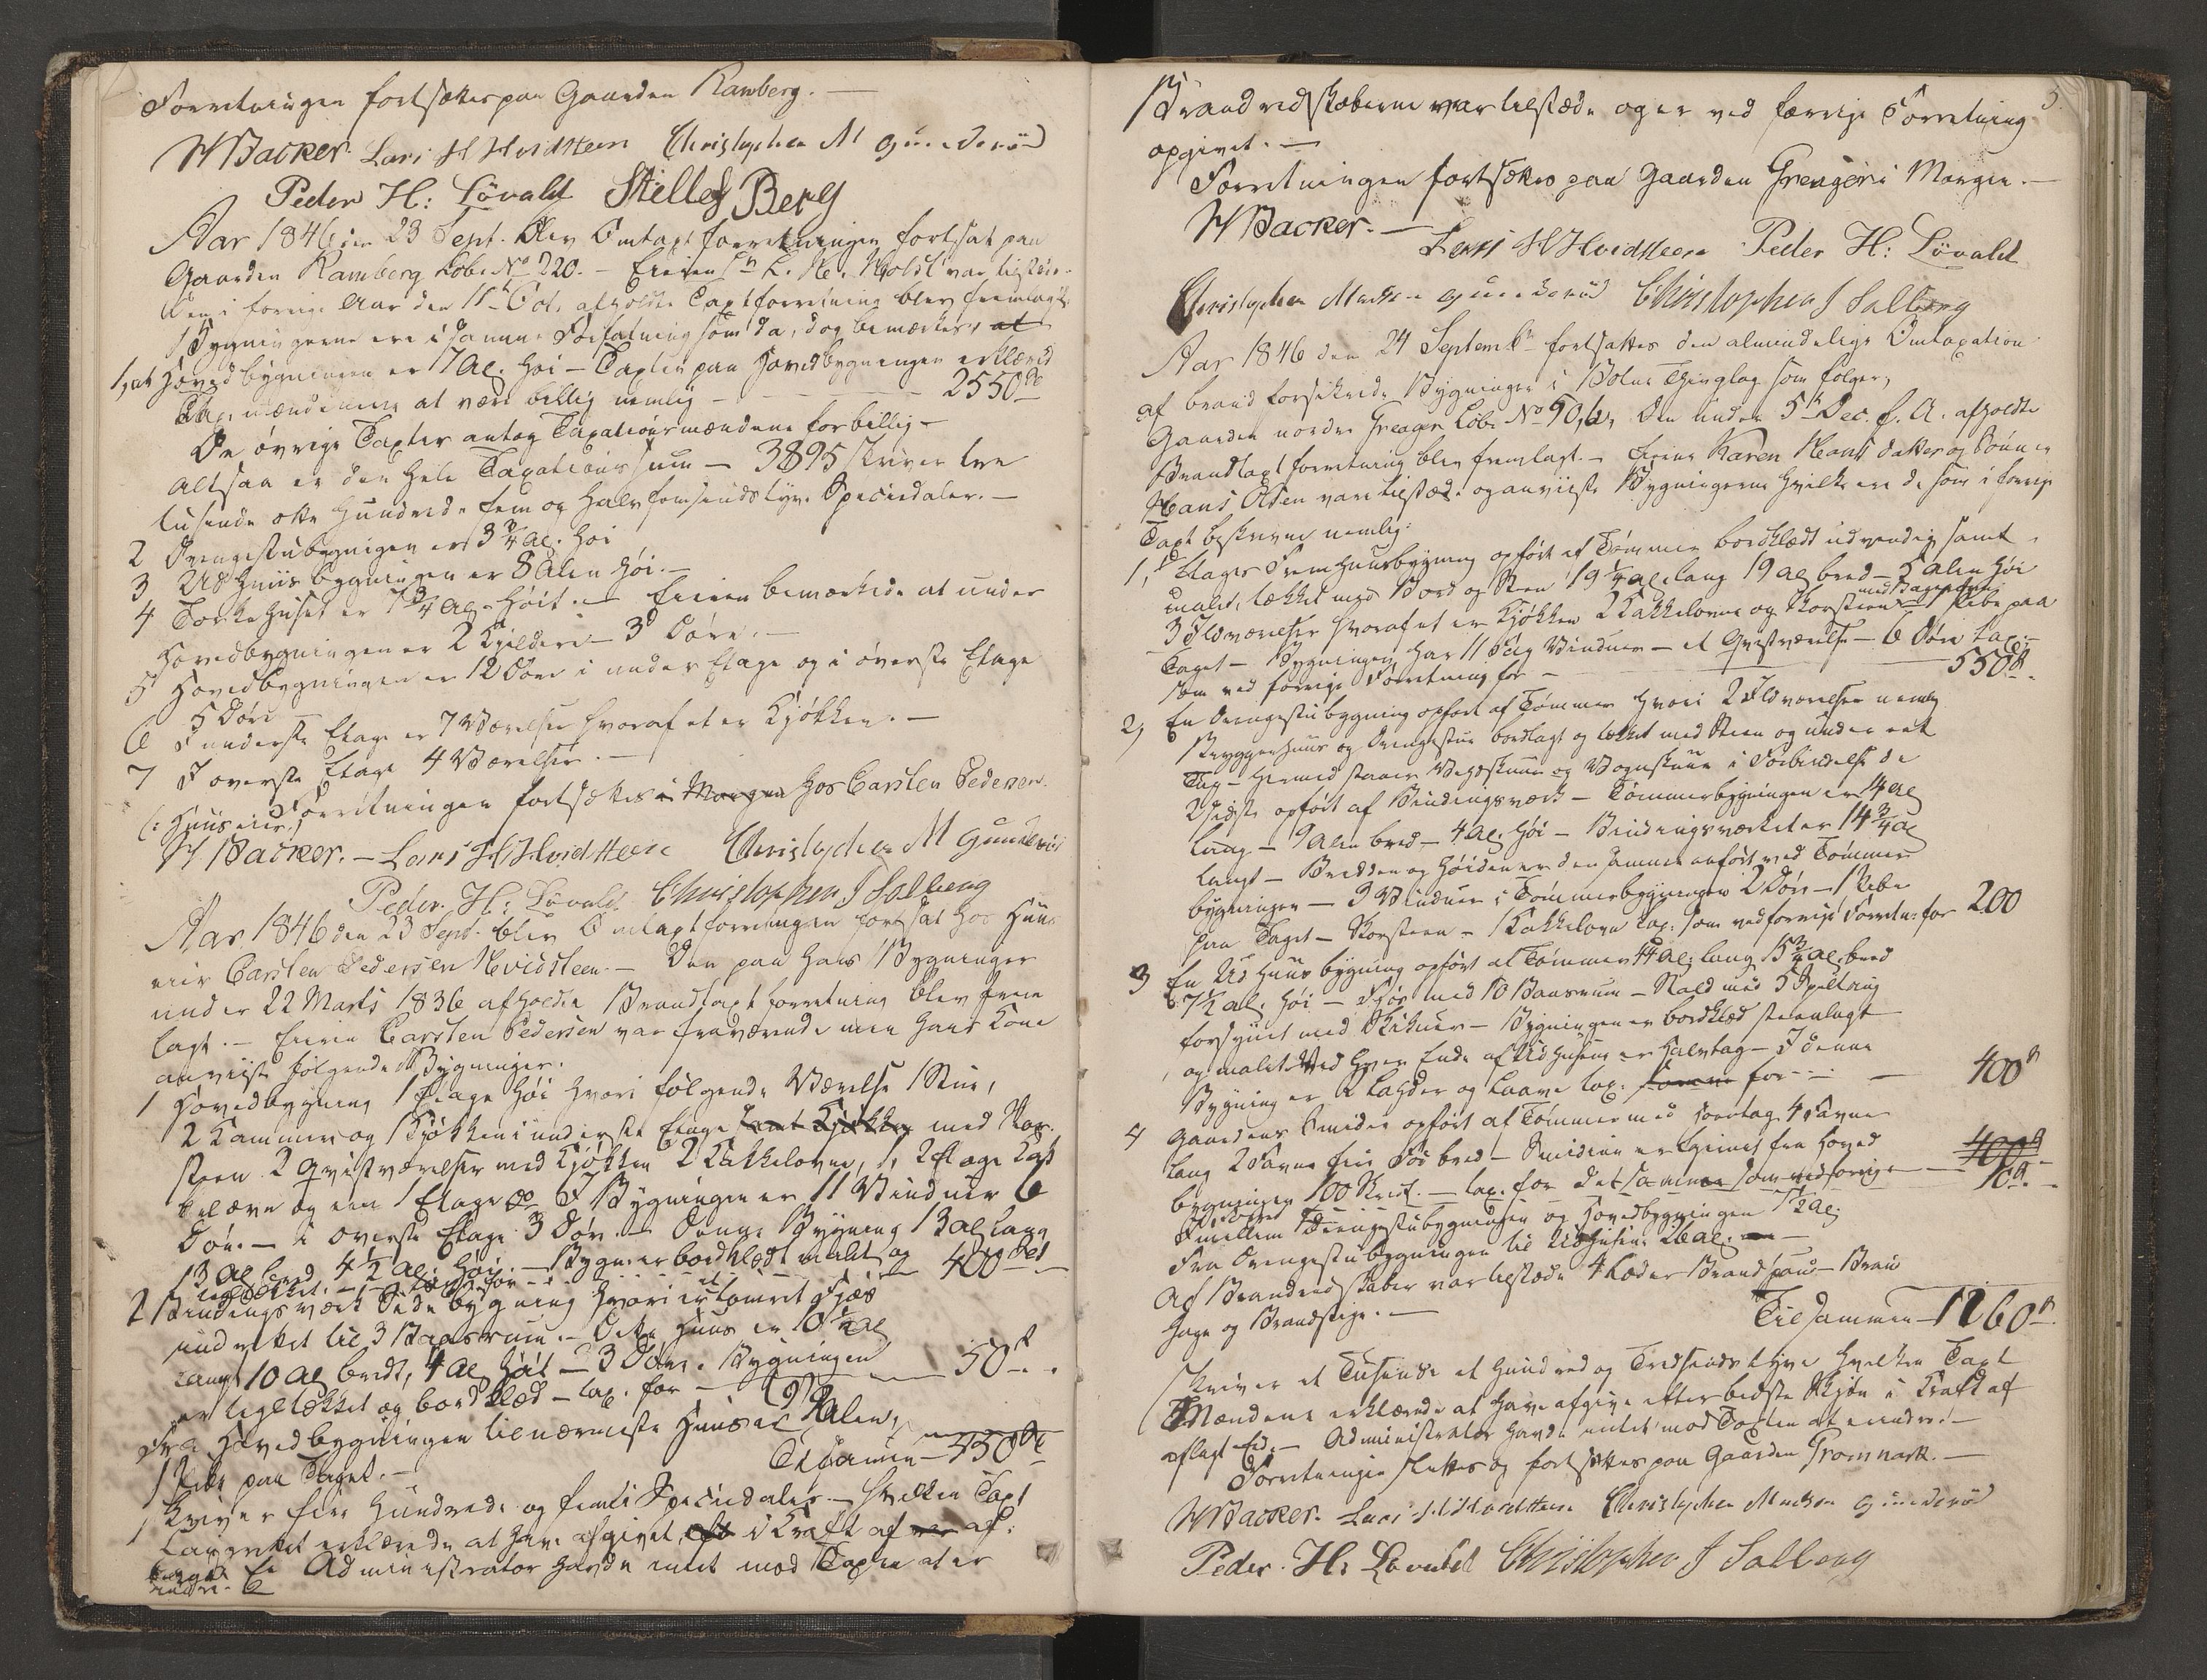 Forretningen fortsættes paa Gaarden Ramberg. —
H Backer. Lars H Hvidsteen Christopher M Gunderud
Peder H: Lövald Stillef Berg
Aar 1846 den 23 Sept. blev Omtaxtforretningen fortsat paa
Gaarden Ramberg Löbe No 220. – Eieren Hr L. Ms. Holst var tilstede.
Den i forrige Aar den 11te Oct. afholdte Taxtforretning blev fremlagt.
Bygningerne ere i samme Forfatning som da, dog bemærkes, at
1, at Hovedbygningen er 7 Al. høi – Taxten paa Hovedbygningen erklærede
Taxmændene at være billig nemlig – – – 2550 Sp
De øvrige Taxter antog Taxationsmændene for billig –
altsaa er den hele Taxationssum – 3895 skriver tre
tusende otte Hundrede fem og halvfemsindstyve Speciedaler. —
2 Drengestubygnigen er 3 3/4 Al. høi
3 Udhuusbygningen er 8 Alen høi. —
4 Torkehuset er 7 3/4 Al. høit. — Eieren bemærkede at under
Hovedbygningen er 2 Kjeldere – 3 Döre. —
5 Hovedbygningen er 12 Döre i under Etage og i överste Etage
5 Döre
6 I underste Etage er 7 Værelser hvoraf et er Kjøkken. —
7 I överste Etage 4 Værelser. —
Forretningen fortsættes i Morgen hos Carsten Pedersen
(: Huuseier :)
H Backer. – Lars H Hvidsteen Christopher M Gunderud
Peder H: Lövald Christopher J Solberg
Aar 1846 den 23 Sept. blev Omtaxtforretningen fortsat hos Huus
eier Carsten Pedersen Hvidsteen. – Den paa hans Bygninger
under 22 Marts 1836 afholdte Brandtaxtforretning blev frem
lagt. – Eieren Carsten Pedersen var fraværende men hans Kone
anviiste følgende Bygninger.
1 Hovedbygning 1 Etage høi hvori følgende Værelser 1 Stue,
2 Kammer og 1 Kjøkken i underste Etage samt Kjøkken med Skor-
steen 2 Qvistværelser med Kjøkken 2 Kakkelovne, 1, 2 Etages Kak
kelovn og een 1 Etage do I Bygningen er 11 Vinduer 6
Döre. – i överste Etage 3 Döre. – Denne Bygning 13 Al lang
13 Al bred 4 1/2 Al. høi. – Bygn er bordklædt malt og
teglstækket. – tax. for – – – 400 Spd
2 Bindingsværk Sidebygning hvori er et tömret Fjøs
indrettet til 3 Baasrum. – Dette Huus er 10 1/2 Al
langt 10 Al bredt, 4 Al høit – 3 Döre. Bygningen
er teglstækket og bordklæd – tax. for – – 50 Sp.
Fra Hovedbygningen til nærmeste Huus er Alen,
1 Pibe paa Taget. —
Tilsammen – 450 Sp
skriver fire Hundrede og femti Speciedaler – hvilken Taxt
Laugrettet erklærede at have afgivet efter i Kraft af af-
lagt Ed Administrator havde intet mod Taxten at er
indre.
5.
Brandredskaberne var tilstæde og er ved forrige Forretning
opgivet. —
Forretningen fortsættes paa Gaarden Greager i Morgen. —
H Backer. —
Lars H Hvidsteen Peder H: Lövald
Christopher Madsen Gunderud Christopher J Solberg
Aar 1846 den 24 Septembr fortsattes den almindelige Omtaxation
af brandforsikrede Bygninger i Botne Thinglag som følger,
Gaarden nordre Greager Löbe No 50,6, Den under 5te Dec. f. A. afholdte
Brandtaxtforretning blev fremlagt. – Eieren Karen Hans datter og Sön er
Hans Olsen vare tilstæde og anviiste Bygningerne hvilke ere de som i forrige
Taxt beskrevne nemlig:
1, 1 Etages Fremhuusbygning opført af Tömmer bordklædt udvendig samt
malet, tækket med Bord og Steen 19 1/4 Al. lang 19 Al bred – 5 Alen høi
3 Ildværelser hvoraf et er Kjøkken 2 Kakkelovne og Skorsteen med Bagerovn 1 Pibe paa
Taget – Bygningen har 11 Fag Vinduer – et Qvistværelse – 6 Döre tax.
som ved forrige Forretning for – – – 550 Sp.
2, En Drengestubygning opført af Tömmer hvori 2 Ildværelser nemlig
Bryggerhuus og Drengestue bordlagt og tækket med Steen og under eet
Tag – hermed staaer Vedskuur og Vognskuur i Forbindelse de
2 sidste opført af Bindingsværk – Tömmerbygningen er 14 Al
lang – 9 Alen bred – 4 Al. høi – Bindingsværket er 14 3/4 Al
langt – Bredden og Høiden er den samme anført ved Tömmer
bygningen – 3 Vinduer i Tömmerbygningen 2 Döre – 1 Pibe
paa Taget – Skorsteen – 1 Kakkelovn tax. som ved forrige Forretn: for 200
3 En Udhuusbygning opført af Tömmer 44 Al. lang 15 3/4 Al. bred
7 1/2 Al. høi – Fjøs med 10 Baasrum – Stald med 5 Spiltaug
forsynet med Skikuer – Bygningen er bordklæd steenlagt
og malet. Ved hver Ende af Udhuset er Halvtag – I denne
Bygning er 2 Lahder og Laave tax. for – – 400 Sp
4 Gaardens Smidie opført af Tömmer med Bordtag. 4 Favne
lang 2 Favne fire Fod bred – Smidien er fjernet fra Hoved
bygningen 100 Skrid. – tax. for det samme som ved forrige – 400 Sp
10 Sp. –
Imellem Drengestubygningen og Hovedbygningen 7 1/2 Al.
Fra Drengestubygningen til Udhuset 26 Al. —
Af Brandredskaber var tilstæde 4 Læder Brandspand – Brand
hage og Brandstige. —
Tilsammen – 1160 Sp.
skriver et Tusende et Hundred og Tredsindstyve hvilken Taxt
Mændene erklærede at have afgive efter bedste Skjøn i Kraft af
aflagt Ed. – Administrator havde intet mod Taxten at erindre. —
Forretningen sluttes og fortsættes paa Gaarden Gromnark. —
H Backer. Lars H Hvidsteen Christopher Madsen Gunderud
Peder. H: Lövald Christopher J Solberg